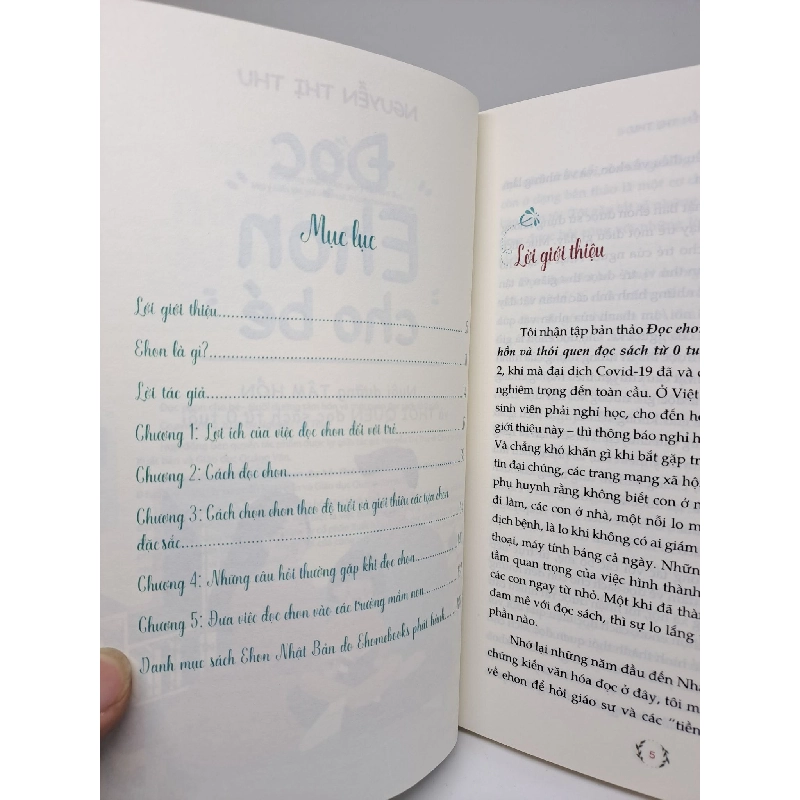 Mục lục
Lời giới thiệu
Ehon là gì?
Lời tác giả
Chương 1: Lợi ích của việc đọc ehon đối với trẻ
Chương 2: Cách đọc ehon
Chương 3: Cách chọn ehon theo độ tuổi và giới thiệu các tựa ehon
đặc sắc
Chương 4: Những câu hỏi thường gặp khi đọc ehon
Chương 5: Đưa việc đọc ehon vào các trường mầm non
Danh mục sách Ehon Nhật Bản do Ehomebooks phát hành
Lời giới thiệu
Tôi nhận tập bản thảo Đọc ehon
hồn và thói quen đọc sách từ 0 tu
2, khi mà đại dịch Covid-19 đã và
nghiêm trọng đến toàn cầu. Ở Việt
sinh viên phải nghỉ học, cho đến
giới thiệu này – thì thông báo nghỉ
Và chẳng khó khăn gì khi bắt gặp
tin đại chúng, các trang mạng xã
phụ huynh rằng không biết con ở
đi làm, các con ở nhà, một nỗi lo
dịch bệnh, là lo khi không có ai giám
thoại, máy tính bảng cả ngày. Những
tầm quan trọng của việc hình thành
các con ngay từ nhỏ. Một khi đã
đam mê với đọc sách, thì sự lo lắng
phần nào.
Nhớ lại những năm đầu đến
chứng kiến văn hóa đọc ở đây, tôi
về ehon để hỏi giáo sư và các "tiền
5
NGUYỄN THỊ THU
Đọc
Ehon
cho bé